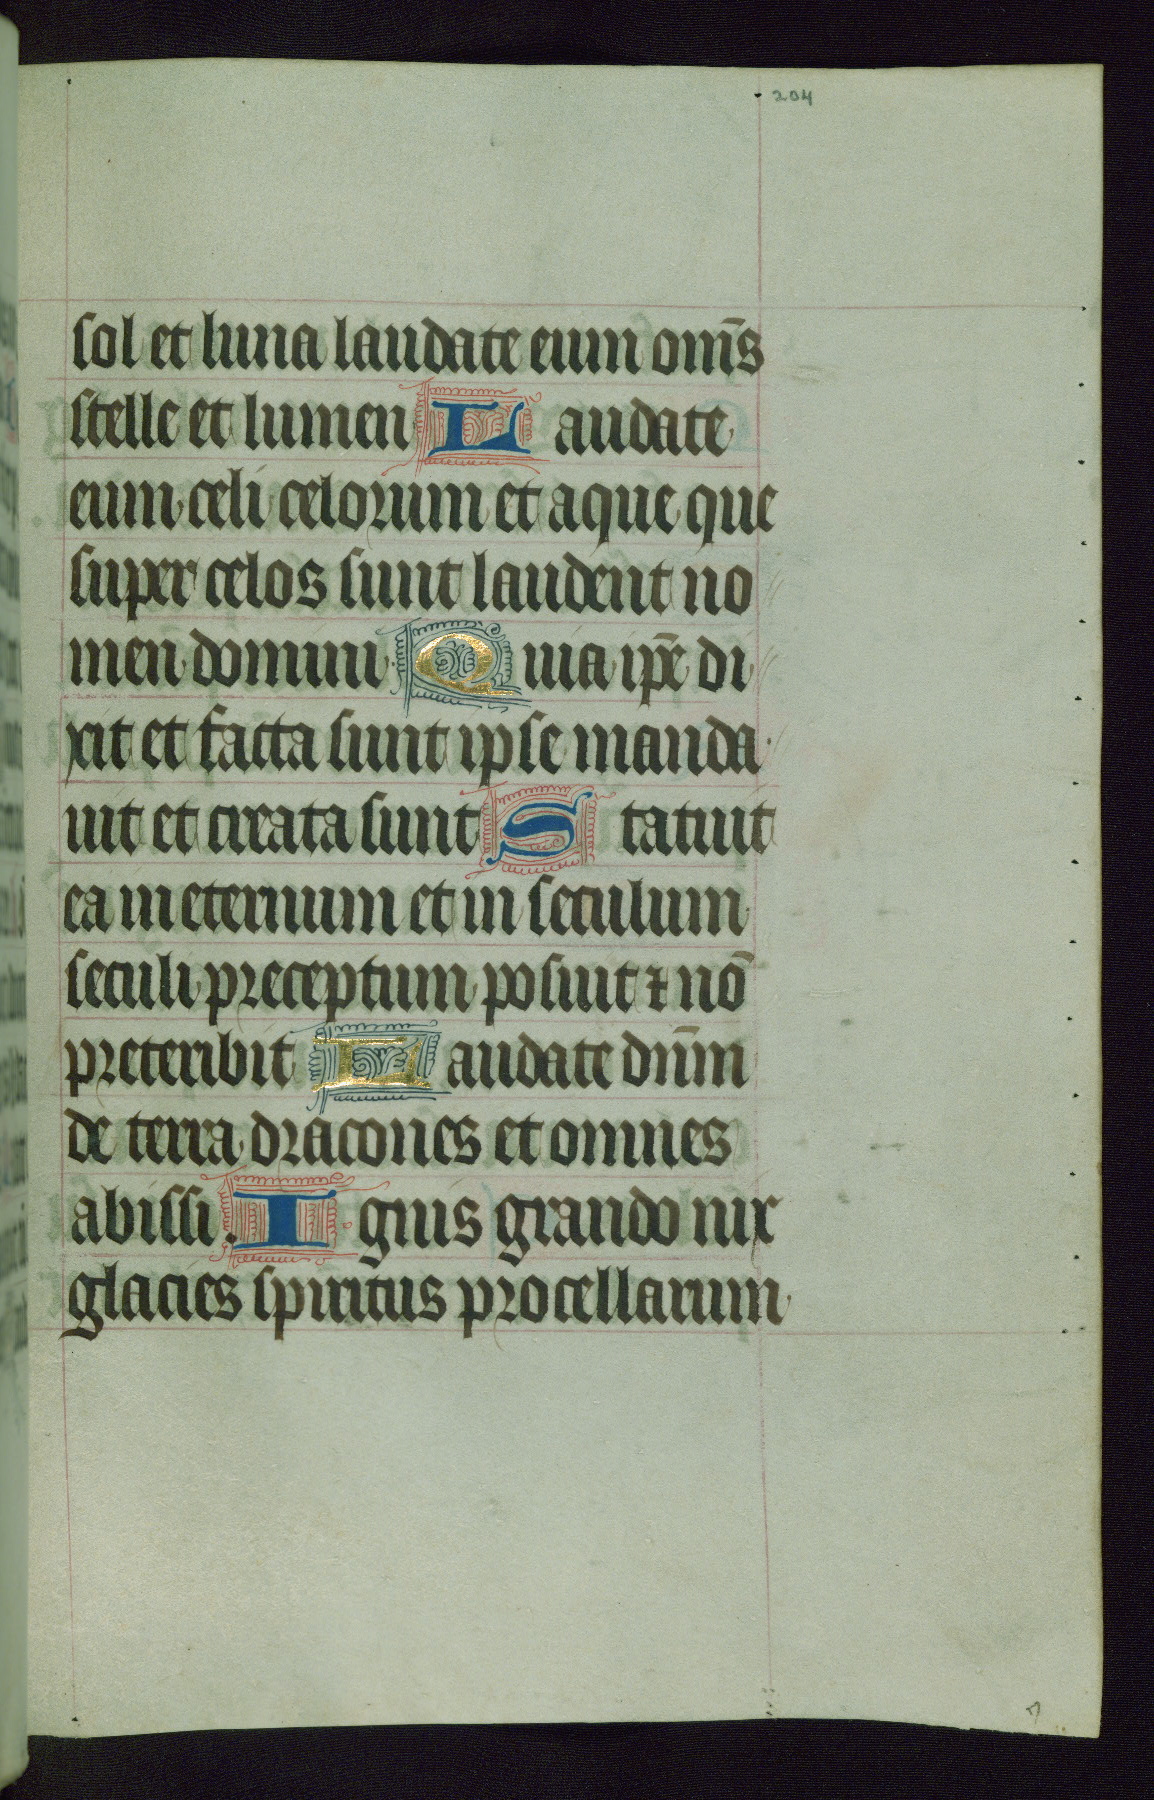 204
sol et luna laudate eum om̄s
stelle et lumen Laudate
eum celi celorum et aque que
super celos sunt laudent no
men domini Quia ip̄e di
xit et facta sunt ipse manda
uit et creata sunt Statuit
ea in eternum et in seculum
seculi preceptum posuit ⁊ nō
preteribit Laudate dn̄m
de terra dracones et omnes
abissi. Ignis grando nix
glacies spiritus procellarum